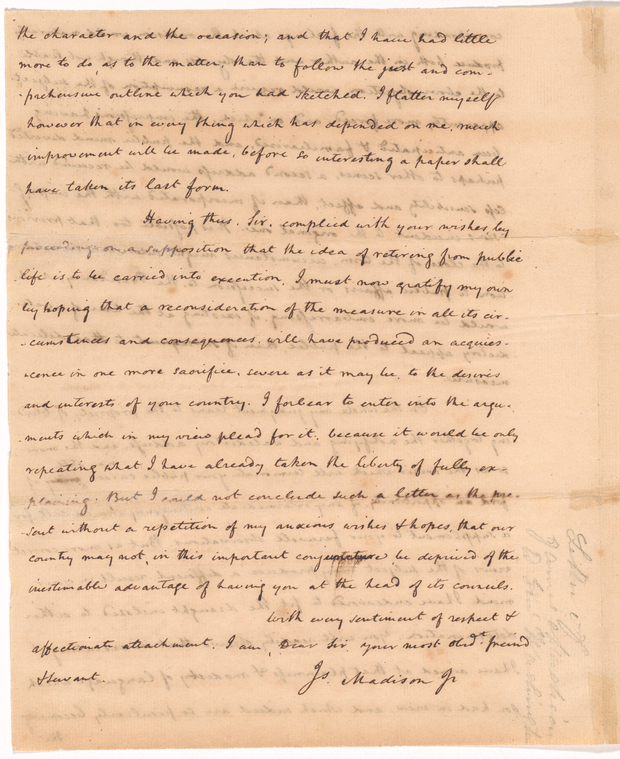 the character and the occasion; and that I have had little
more to do, as to the matter, than to follow the just and com-
-prehensive outline which you had sketched. I flatter myself
however that in every thing which has depended on me, much
improvement will be made, before so interesting a paper shall
have taken its last form.
Having thus, Sir, complied with your wishes, by
proceeding on a supposition that the idea of retiring from public
life is to be carried into execution, I must now gratify my own
by hoping that a reconsideration of the measure in all its cir-
-cumstances and consequences, will have produced an acquies-
-cence in one more sacrifice, severe as it may be, to the desires
and interests of your country. I forbear to enter into the argu-
-ments which in my view plead for it, because it would be only
repeating what I have already taken the liberty of fully ex-
-plaining. But I could not conclude such a letter as the pre-
-sent without a repetition of my anxious wishes & hopes, that our
country may not, in this important conjuncture be deprived of the
inestimable advantage of having you at the head of its councils.
With every sentiment of respect &
affectionate attachment, I am, Dear Sir, your most obdt. friend
& servant.
Js. Madison Jr